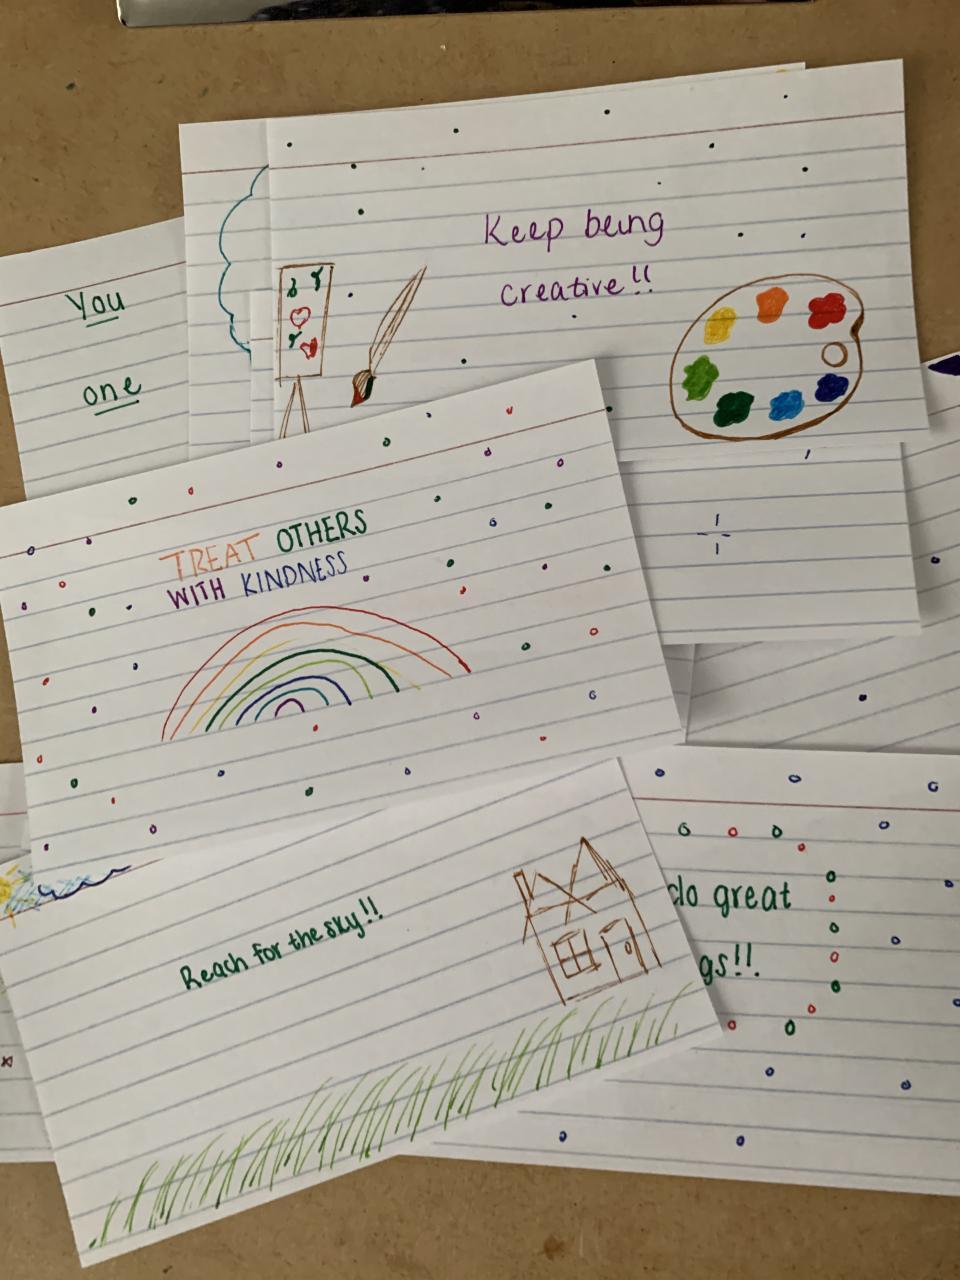 You
one
Keep being
creative!!
TREAT OTHERS
WITH KINDNESS
Reach for the sky!!
do great
gs!!